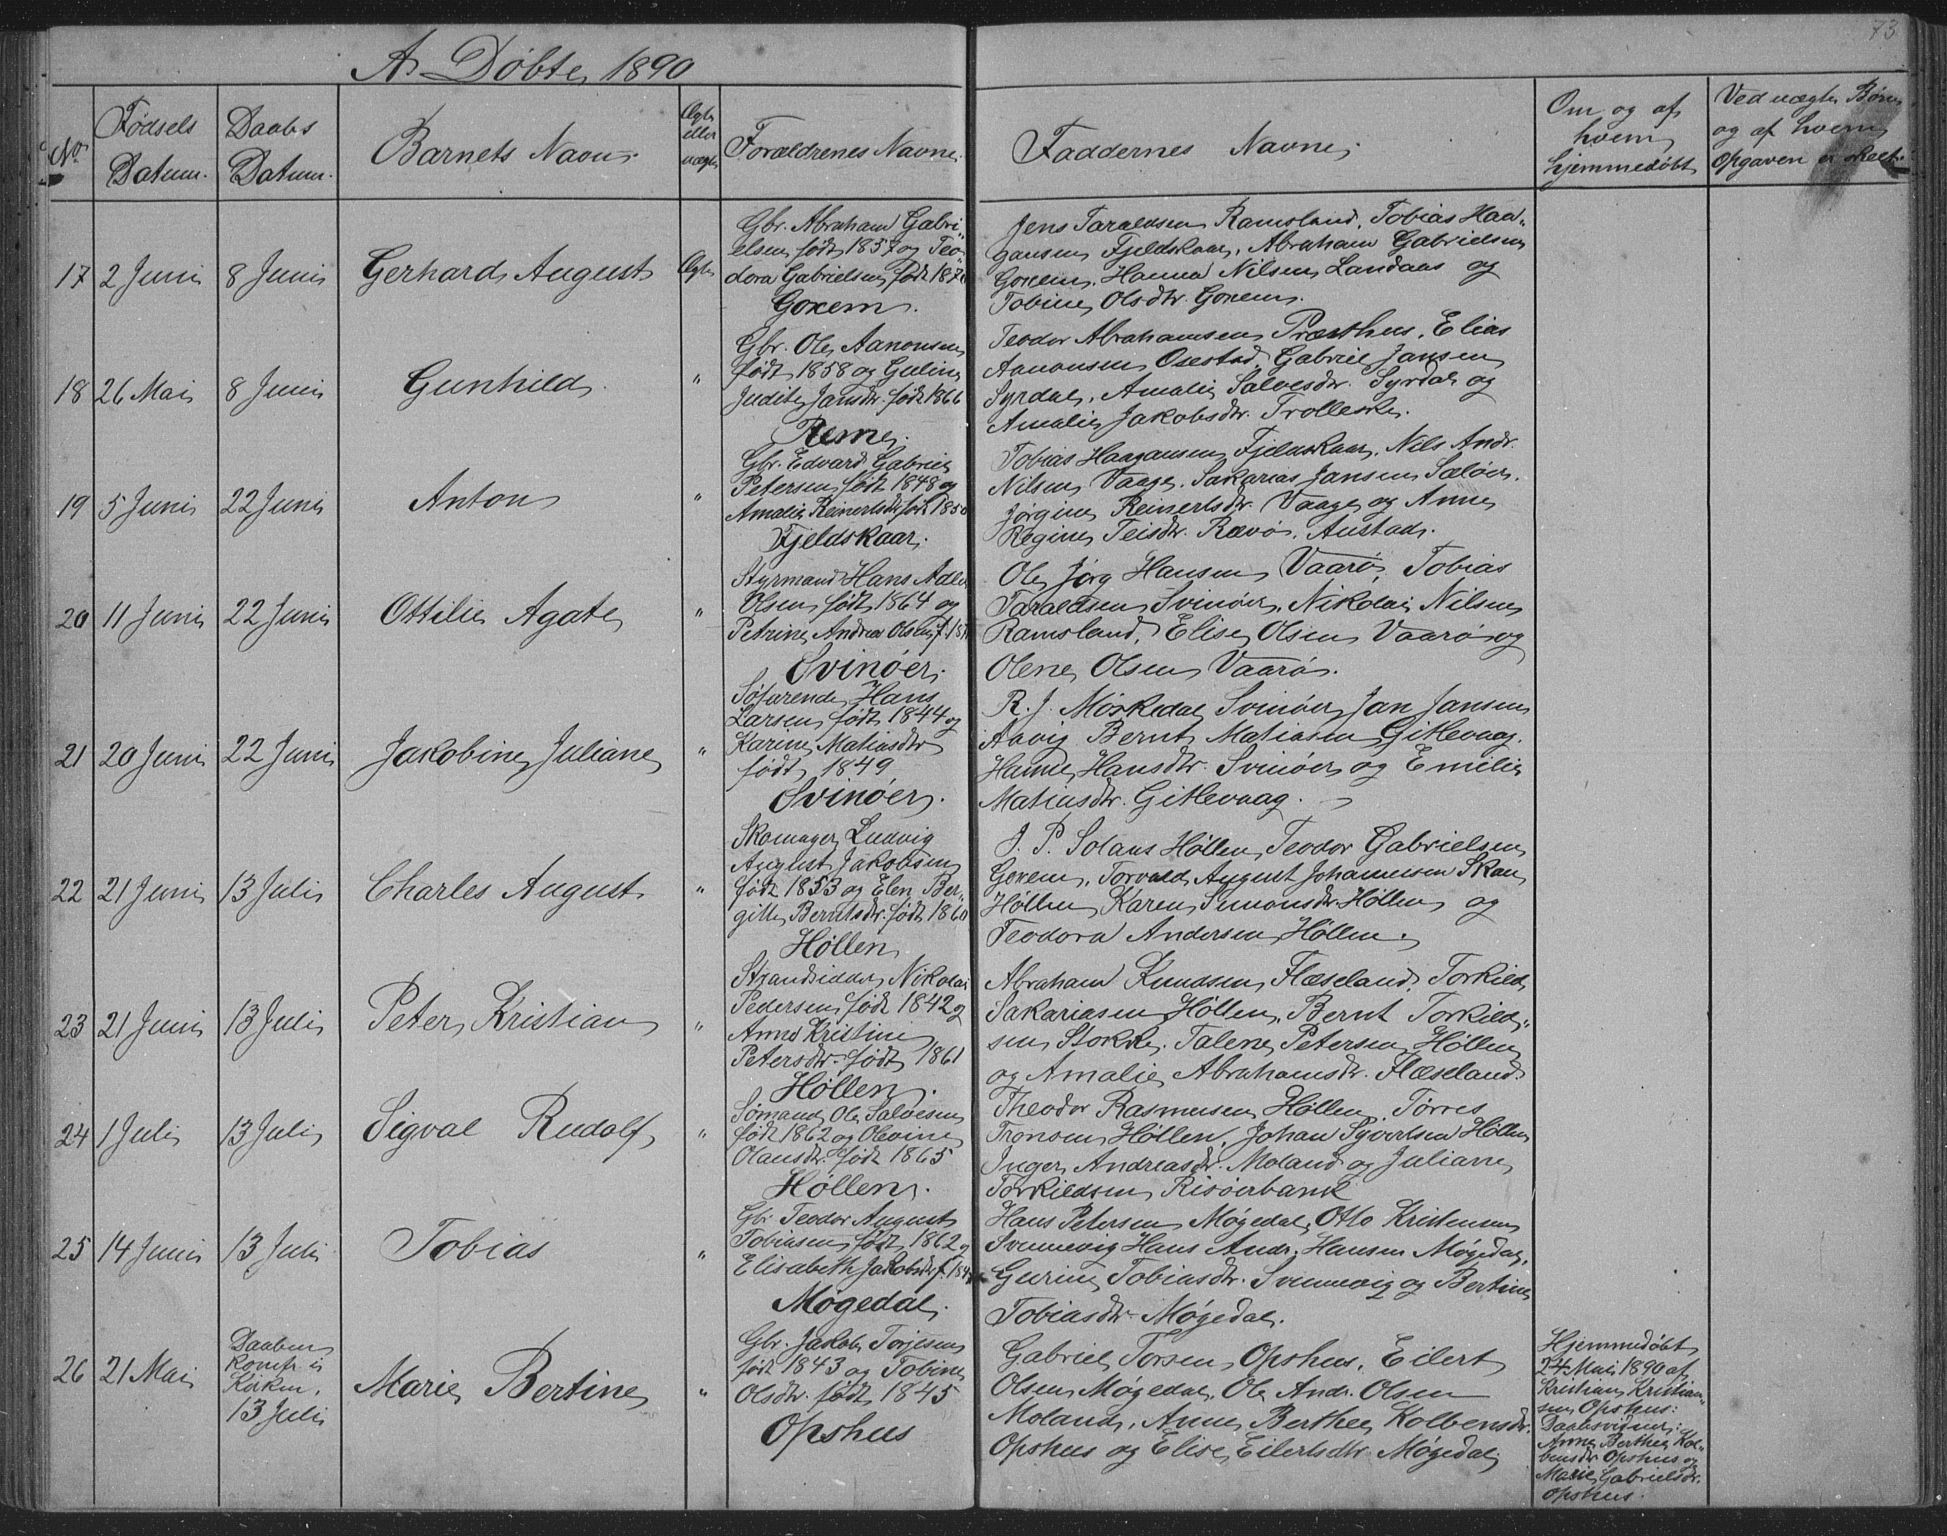 A. Døbte, 1890
73
No.
Fødsels Datum.
Daabs Datum.
Barnets Navn.
Ægte eller uægte
Forældrenes Navne.
Faddernes Navne.
Om og af hvem hjemmedøbt
Ved uægte Børn og af hvem Opgaven er skeet.
17 2 Juni 8 Juni Gerhard August Ægte
Gbr. Abraham Gabri-
elsen født 1857 og Teo-
dora Gabrielsen født 187
Goxem.
Jens Taraldsen Ramsland, Tobias Haa-
gansen Fjeldskaar, Abraham Gabrielsen
Goxem, Hanna Nilsen Landaas og
Tobine Olsdtr. Goxem.
18 26 Mai 8 Juni Gunhild "
Gbr. Ole Aanonsen
født 1858 og Guline
Judite Jansdtr. født 1866
Reme.
Teodor Abrahamsen Præsthus, Elias
Aanonsen Osestad, Gabriel Jansen
Syrdal, Amalie Salvesdtr. Syrdal og
Amalie Jakobsdtr. Trolleske.
19 5 Juni 22 Juni Anton "
Gbr. Edvard Gabriel
Petersen født 1848 og
Amalie Reinertsdtr født 185
Fjeldskaar.
Tobias Haagansen Fjeldskaar, Nils Andr.
Nilsen Vaage, Sakarias Jansen Sæløer,
Jørgine Reinertsdr. Vaage og Anne
Regine Teisdtr. Rævø, Austad.
20 11 Juni 22 Juni Ottilie Agate "
Styrmand Hans Adle
Olsen født 1864 og
Petrine Andrea Olsen f. 18
Svinøer.
Ole Jørg Hansen Vaarø, Tobias
Taraldsen Svinøer, Nikolai Nilsen
Ramsland, Elise Olsen Vaarø og
Olene Olsen Vaarø.
21 20 Juni 22 Juni Jakobine Juliane "
Søfarende Hans
Larsen født 1844 og
Karine Matiasdtr
født 1849
Svinøer.
R. J. Møskedal Svinøer, Jan Jansen
Aavig Bernt Matiasen Gitlevaag.
Hanne Hansdtr. Svinøer og Emilie
Matiasdtr. Gitlevaag.
22 21 Juni 13 Juli Charles August "
Skomager Ludvig
August Jakobsen
født 1853 og Elen Ber-
gitte Berntsdtr. født 1860
Høllen
J. P. Solaas Høllen, Teodor Gabrielsen
Goxem, Torvald August Johannesen Skau
Høllen Karen Simonsdtr. Høllen og
Teodora Andersen Høllen.
23 21 Juni 13 Juli Peter Kristian "
Strandsidder Nikolai
Pedersen født 1842 og
Anne Kristine
Petersdtr. født 1861
Høllen.
Abraham Knudsen Flæseland, Torkild
Sakariasen Høllen, Bernt Torkild-
sen Stokke, Talene Petersen Høllen
og Amalie Abrahamsdtr. Flæseland.
24 1 Juli 13 Juli Sigval Rudolf "
Sømand Ole Salvesen
født 1862 og Olevine
Olausdtr. født 1865
Høllen.
Theodor Rasmussen Høllen, Tørres
Tronsen Høllen, Johan Syvertsen Høllen
Inger Andreasdtr. Moland og Juliane
Torkildsen Risøerbank
25 14 Juni 13 Juli Tobias "
Gbr. Teodor August
Tobiasen født 1862 og
Elisabeth Jakobsdtr f. 184
Møgedal.
Hans Petersen Møgedal, Otto Kristensen
Svennevig Hans Andr. Hansen Møgedal,
Gurine Tobiasdtr. Svennevig og Bertine
Tobiasdtr. Møgedal.
26 21 Mai
Daaben
Komfr. i
Kirken,
13 Juli
Marie Bertine "
Gbr. Jakob Torjesen
født 1843 og Tobine
Olsdtr. født 1845
Opshus
Gabriel Torsen Opshus, Eilert
Olsen Møgedal, Ole Andr. Olsen
Moland, Anne Berthe Kolbensdtr.
Opshus og Elise Eilertsdtr. Møgedal.
Hjemmedøbt
24 Mai 1890 af
Kristian Kristian-
sen Opshus:
Daabsvidner:
Anne Berthe Kol-
bensdtr Opshus og
Marie Gabrielsdtr.
Opshus.